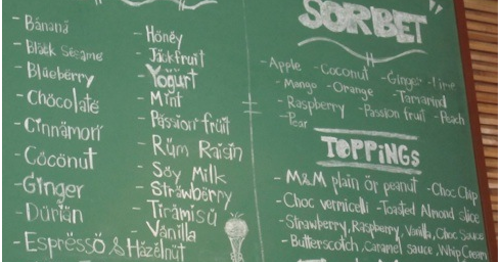 - Bánänä
- Bläck Sësame
- Blüëberry
- Chöcolaté
- Cïnnämon
- Cöcönut
- Gïnger
- Dürïan
- Esprëssö & Häzëlnüt
- Höney
- Jäckfruit
- Yögürt
- Mïnt
- Pässion früit
- Rüm Raïsin
- Söy Milk
- Sträwbërry
- Tïramisü
- Vänilla
SORBET
- Apple - Coconut - Ginger - Lime
- Mango - Orange - Tamarind
- Raspberry - Passion fruit - Peach
- Pear
TOPPiNGS
- M&M plain ör peanut - Choc Chip
- Choc vermicelli - Toasted Almond slice
- Strawberry, Raspberry, Vanilla, Choc Sauce
- Butterscotch, Caramel sauce, Whip Cream